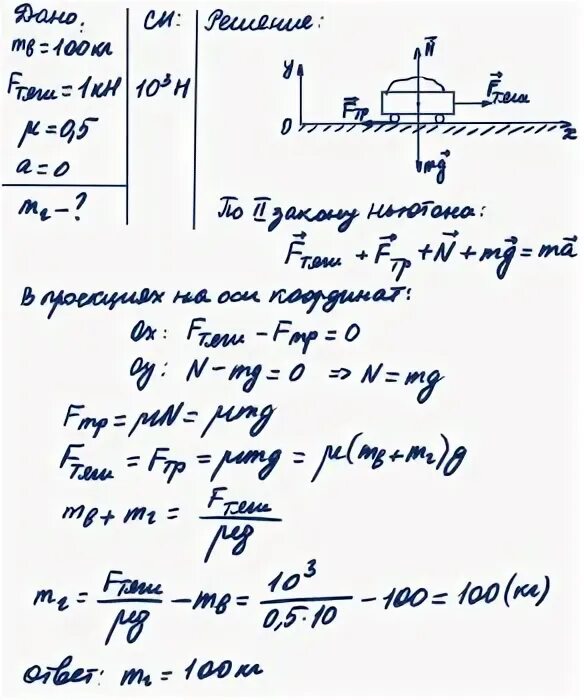 Дано:
mв = 100 кг
Fтяги = 1 кН
μ = 0,5
a = 0
mг - ?
СИ:
10³ Н
Решение:
y
N⃗
F⃗тр
F⃗тяги
0
x
mg⃗
По II закону Ньютона:
F⃗тяги + F⃗тр + N⃗ + mg⃗ = ma⃗
В проекциях на оси координат:
Ox: Fтяги - Fтр = 0
Oy: N - mg = 0 ⇒ N = mg
Fтр = μN = μmg
Fтяги = Fтр = μmg = μ(mв + mг)g
mв + mг = Fтяги / μg
mг = Fтяги / μg - mв = 10³ / 0,5·10 - 100 = 100 (кг)
Ответ: mг = 100 кг